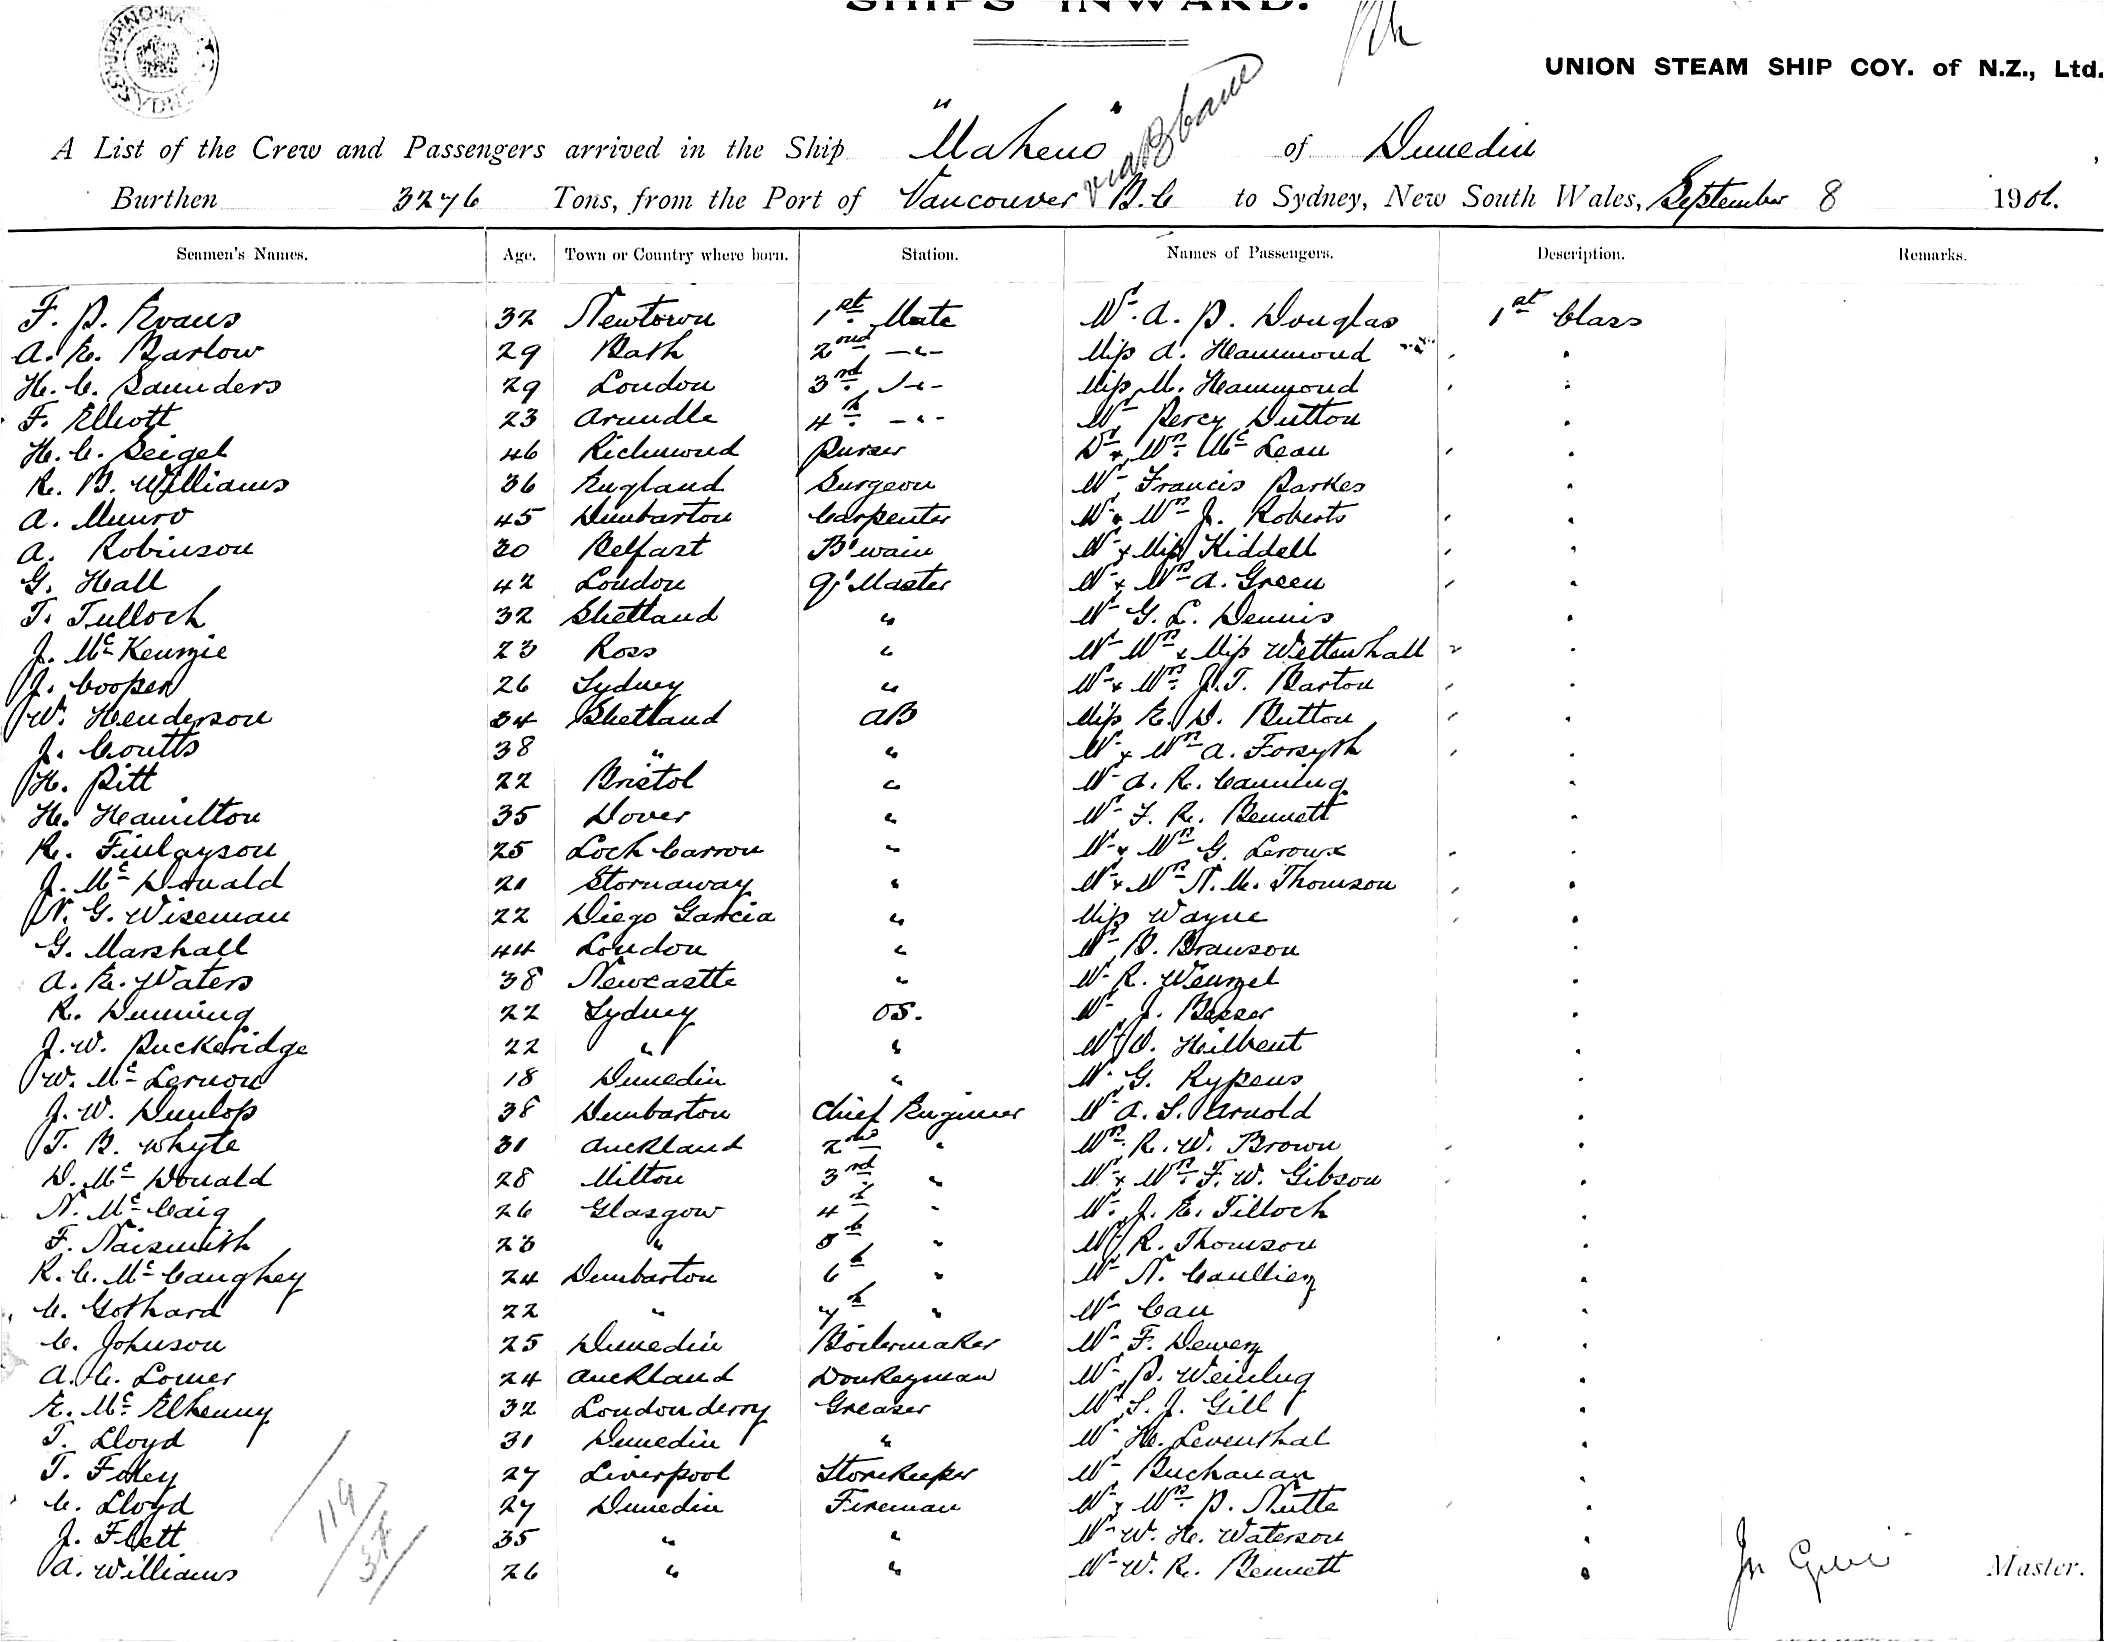 SHIPS INWARD.
UNION STEAM SHIP COY. of N.Z., Ltd.
via Bbane
A List of the Crew and Passengers arrived in the Ship "Maheno" of Dunedin
Burthen 3276 Tons, from the Port of Vancouver B.C to Sydney, New South Wales, September 8 1906.
Seamen's Names. Age. Town or Country where born. Station. Names of Passengers. Description. Remarks.
F. P. Evans 32 Newtown 1st Mate Mr. A. P. Douglas 1st Class
A. E. Barlow 29 Bath 2nd -"- Miss A. Hammond "
H. C. Saunders 29 London 3rd -"- Miss M. Hammond "
F. Elliott 23 Arundle 4th -"- Mr Percy Dutton "
H. C. Seigel 46 Richmond Purser Dr & Mrs McLean "
R. B. Williams 36 England Surgeon Mr Francis Parkes "
A. Munro 45 Dunbarton Carpenter Mr & Mrs J. Roberts "
A. Robinson 30 Belfast B'swain Mr & Miss Kiddell "
G. Hall 42 London Qr Master Mr & Mrs A. Green "
T. Tulloch 32 Shetland " Mr G. L. Dennis "
J. McKenzie 23 Ross " Mr Mrs & Miss Wettenhall "
J. Cooper 26 Sydney " Mr & Mrs J. T. Barton "
W. Henderson 34 Shetland AB Miss E. D. Button "
J. Coutts 38 " " Mr & Mrs A. Forsyth "
H. Pitt 22 Bristol " Mr A. R. Canning "
H. Hamilton 35 Dover " Mr F. R. Bennett "
R. Finlayson 25 Loch Carron " Mr & Mrs G. Leroux "
J. McDonald 21 Stornaway " Mr & Mrs N. M. Thomson "
N. G. Wiseman 22 Diego Garcia " Miss Wayne "
G. Marshall 44 London " Mr B. Branson "
A. E. Waters 38 Newcastle " Mr R. Wenzel "
R. Dunning 22 Sydney OS. Mr J. Besser "
J. W. Puckeridge 22 " " Mr O. Hilbent "
W. McLernon 18 Dunedin " Mr G. Rypens "
J. W. Dunlop 38 Dunbarton Chief Engineer Mr A. S. Arnold "
T. B. Whyte 31 Auckland 2nd " Mrs R. W. Brown "
D. McDonald 28 Milton 3rd " Mr & Mrs F. W. Gibson "
N. McCaig 26 Glasgow 4th " Mr J. E. Tilloch "
F. Naismith 23 " 5th " Mr R. Thomson "
R. C. McCaughey 24 Dunbarton 6th " Mr N. Caulliez "
C. Gothard 22 " 7th " Mr Cau "
C. Johnson 25 Dunedin Boilermaker Mr F. Dewez "
A. C. Lomer 24 Auckland Donkeyman Mr P. Weinlug "
E. McElhenny 32 Londonderry Greaser Mr S. J. Gill "
T. Lloyd 31 Dunedin " Mr H. Leventhal "
T. Foley 27 Liverpool Storekeeper Mr Buchanan "
C. Lloyd 27 Dunedin Fireman Mr & Mrs P. Nutte "
J. Flett 35 " " Mr W. H. Waterson "
A. Williams 26 " " Mr W. R. Bennett "
119
38
Master.